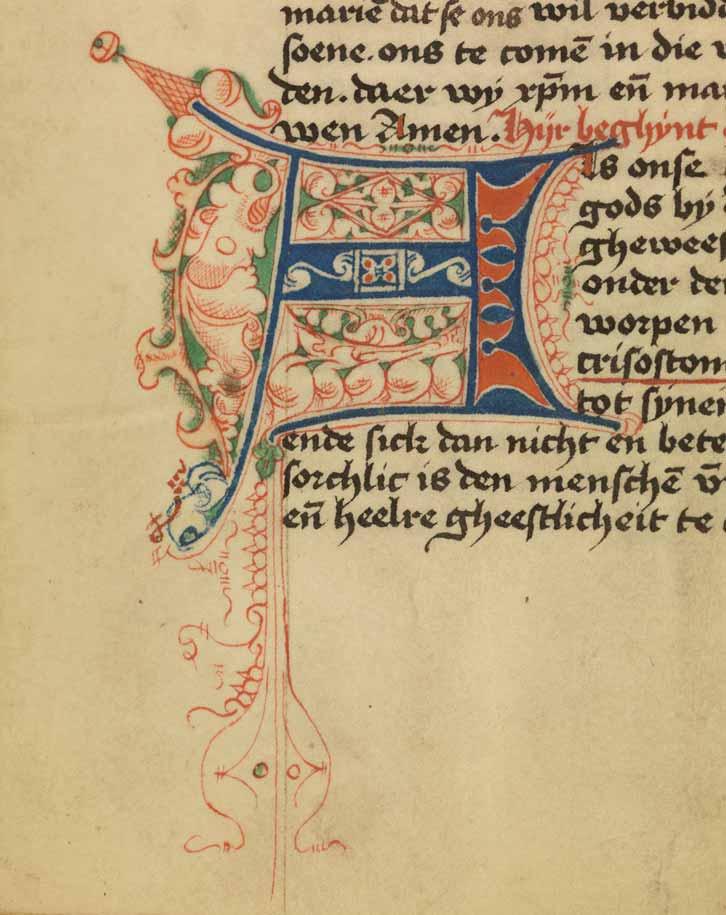 marie dat se ons wil verbidd
soene. ons te comē in die
den. daer wij xp̄m en̄ mar
wen Amen. Hijr beghijnt
A
ls onse
gods bij
gheweef
onder de
worpen
crisostom
tot sijnen
ende sick dan nicht en bete
sorchlic is den menschē v̄
en̄ heelre gheestlicheit te